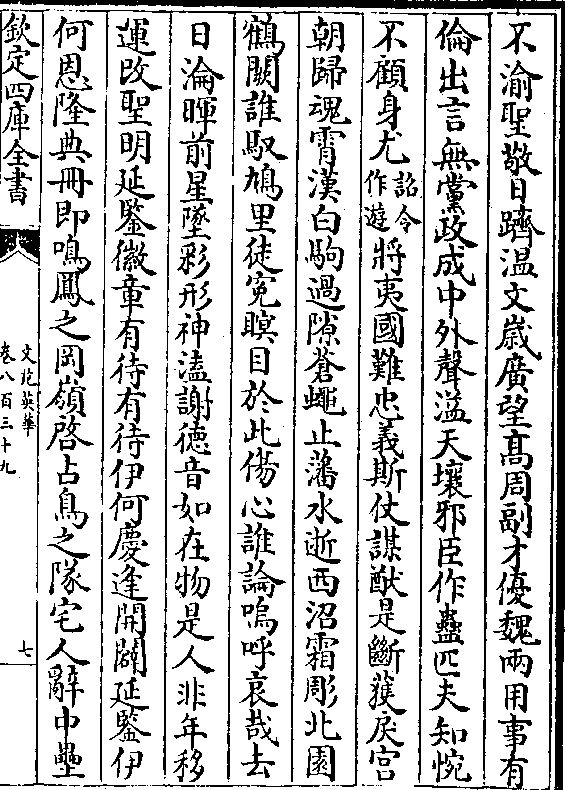 不渝聖敬日躋温文嵗廣望髙周副才優魏兩用事有
倫出言無黨政成中外聲溢天壤邪臣作蠱匹夫知惋
不顧身尤詔令作遊將夷國難忠義斯仗謀猷是斷獲戾宫
朝歸魂霄漢白駒過隙蒼蠅止藩水逝西沼霜彫北園
鶴闕誰馭鳩里徒寃瞑目於此傷心誰論嗚呼哀哉去
日淪暉前星墜彩形神溘謝徳音如在物是人非年移
運改聖明延鑒徽章有待有待伊何慶逢開闢延鑒伊
何恩隆典冊即鳴鳳之岡嶺啓占鳥之隊宅人辭中壘
欽定四庫全書
文苑英華
卷八百三十九
七